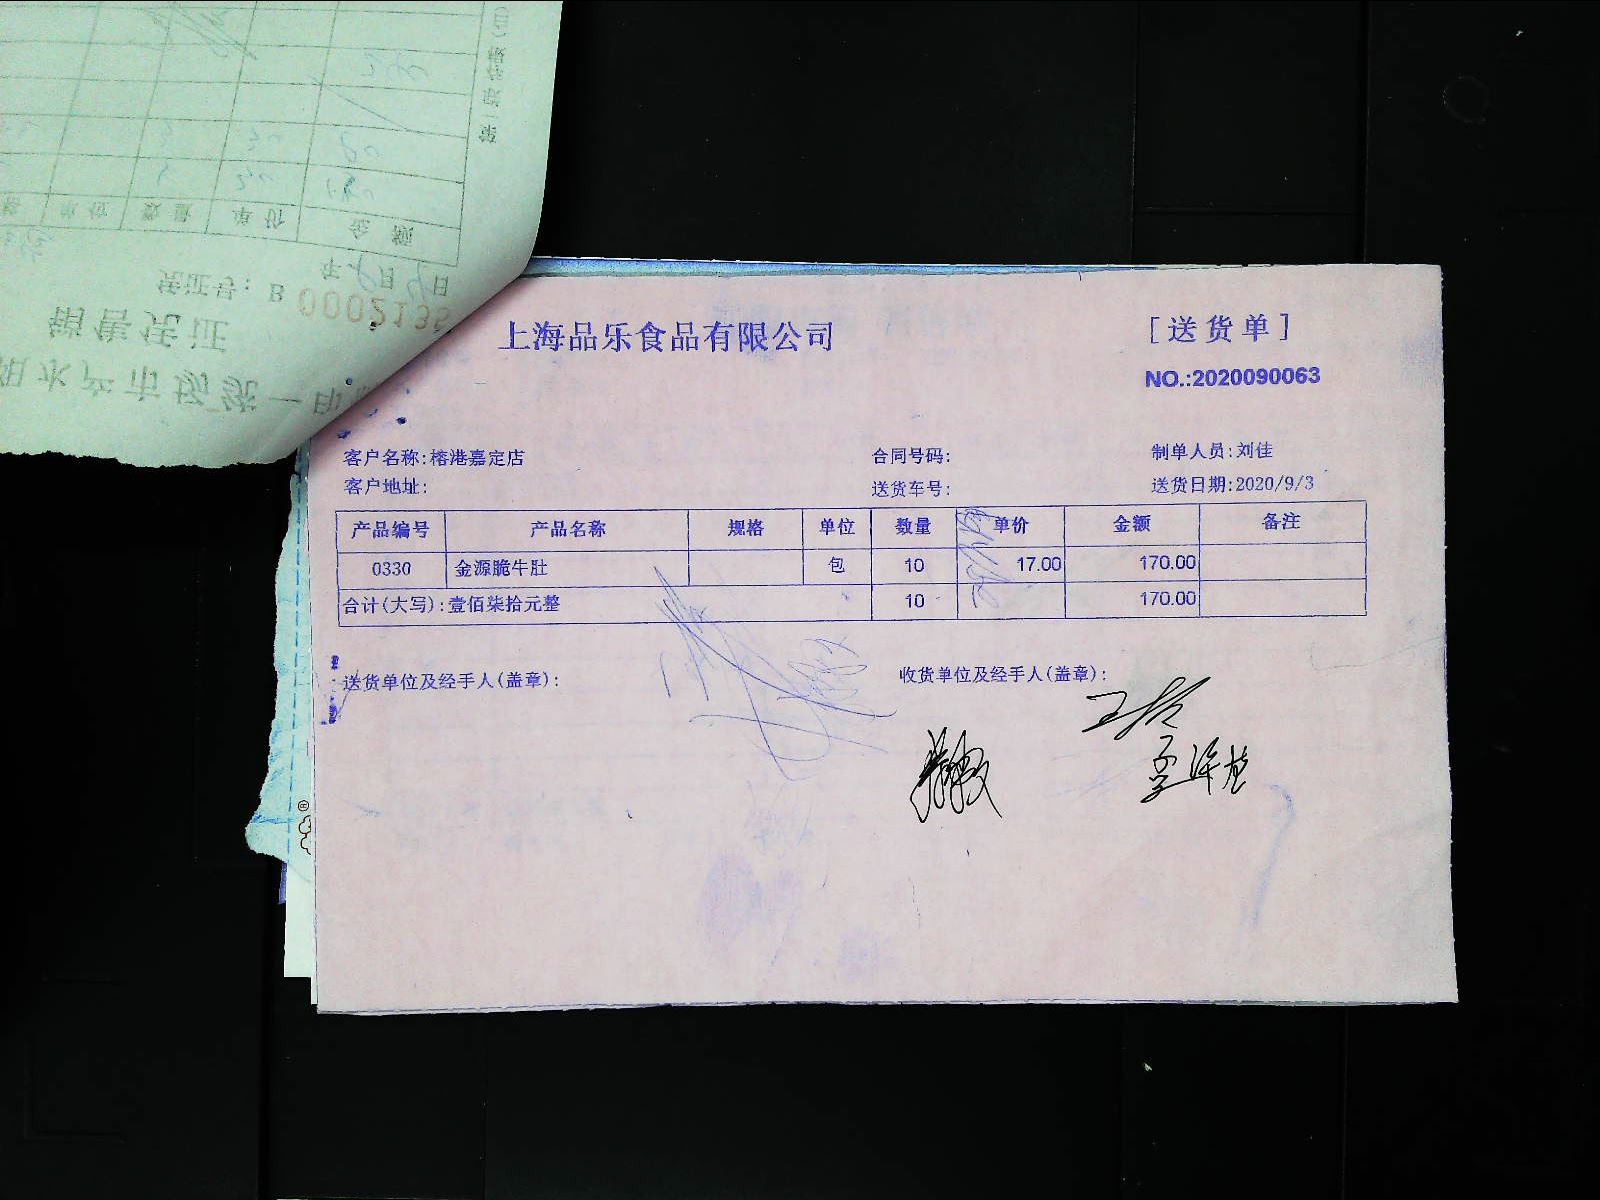 上海品乐食品有限公司
[送货单]
NO.:2020090063
客户名称:榕港嘉定店
合同号码:
制单人员:刘佳
客户地址:
送货车号:
送货日期:2020/9/3
产品编号 产品名称 规格 单位 数量 单价 金额 备注
0330 金源脆牛肚 包 10 17.00 170.00
合计(大写):壹佰柒拾元整 10 170.00
送货单位及经手人(盖章):
收货单位及经手人(盖章):
销售凭证
凭证号: B 0002135
年 月 日
单价 数量 单价 金额